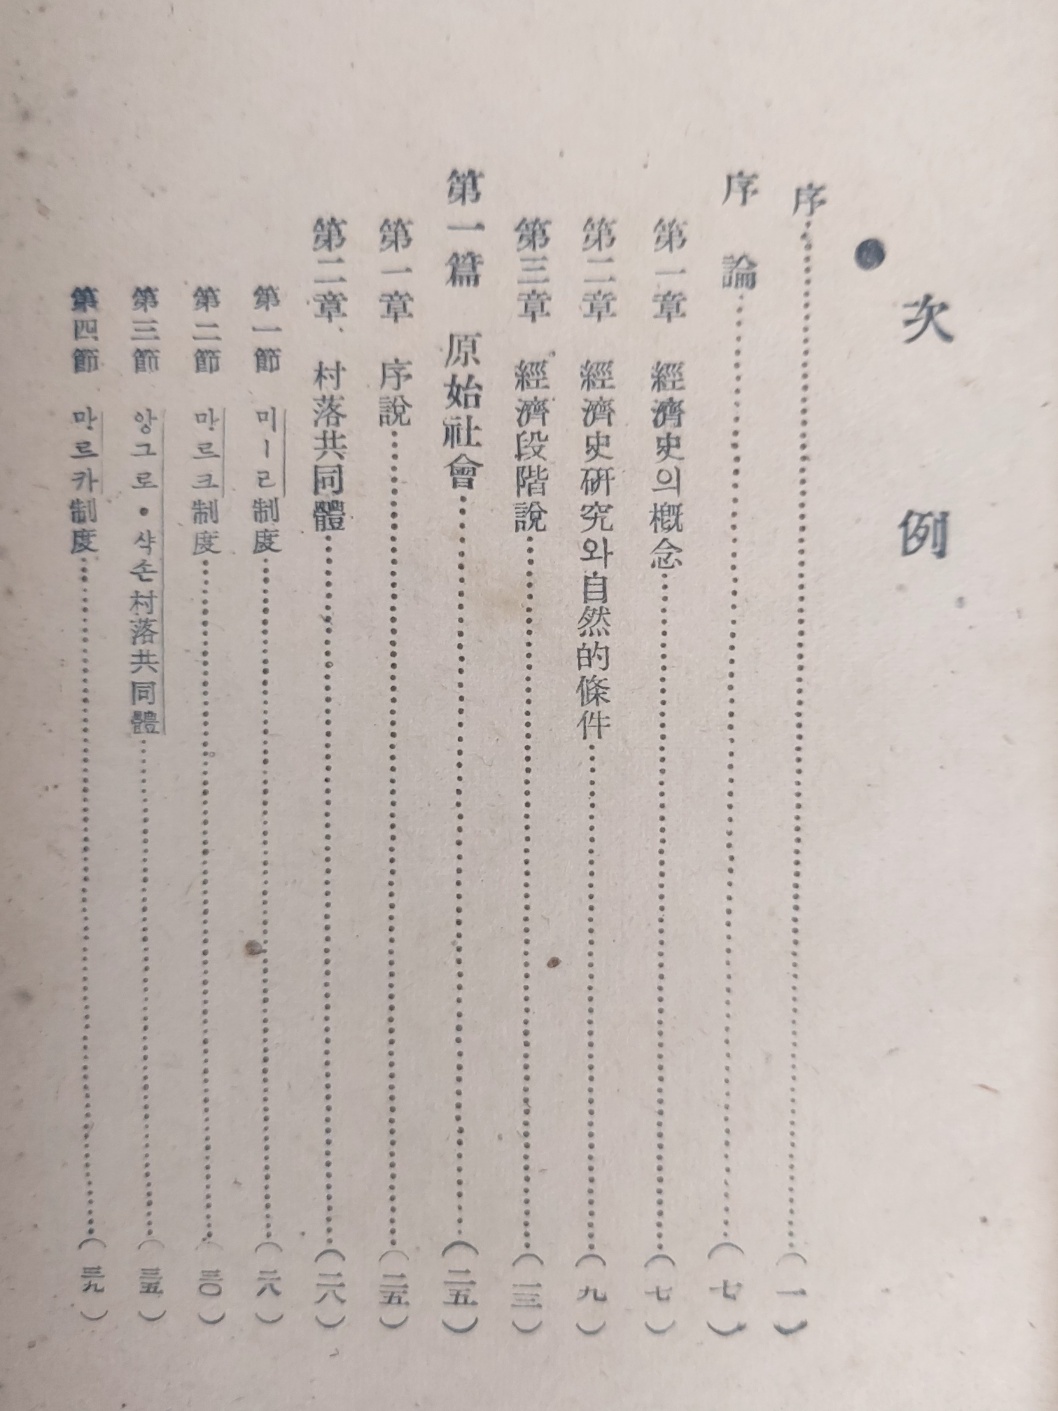 次例
序……(一)
序論……(七)
第一章 經濟史의 槪念……(七)
第二章 經濟史硏究와 自然的條件……(九)
第三章 經濟段階說……(一三)
第一篇 原始社會……(二五)
第一章 序說……(二五)
第二章 村落共同體……(二八)
第一節 미ー르制度……(二八)
第二節 마르크制度……(三〇)
第三節 앙그로・삭손村落共同體……(三五)
第四節 마르카制度……(三九)